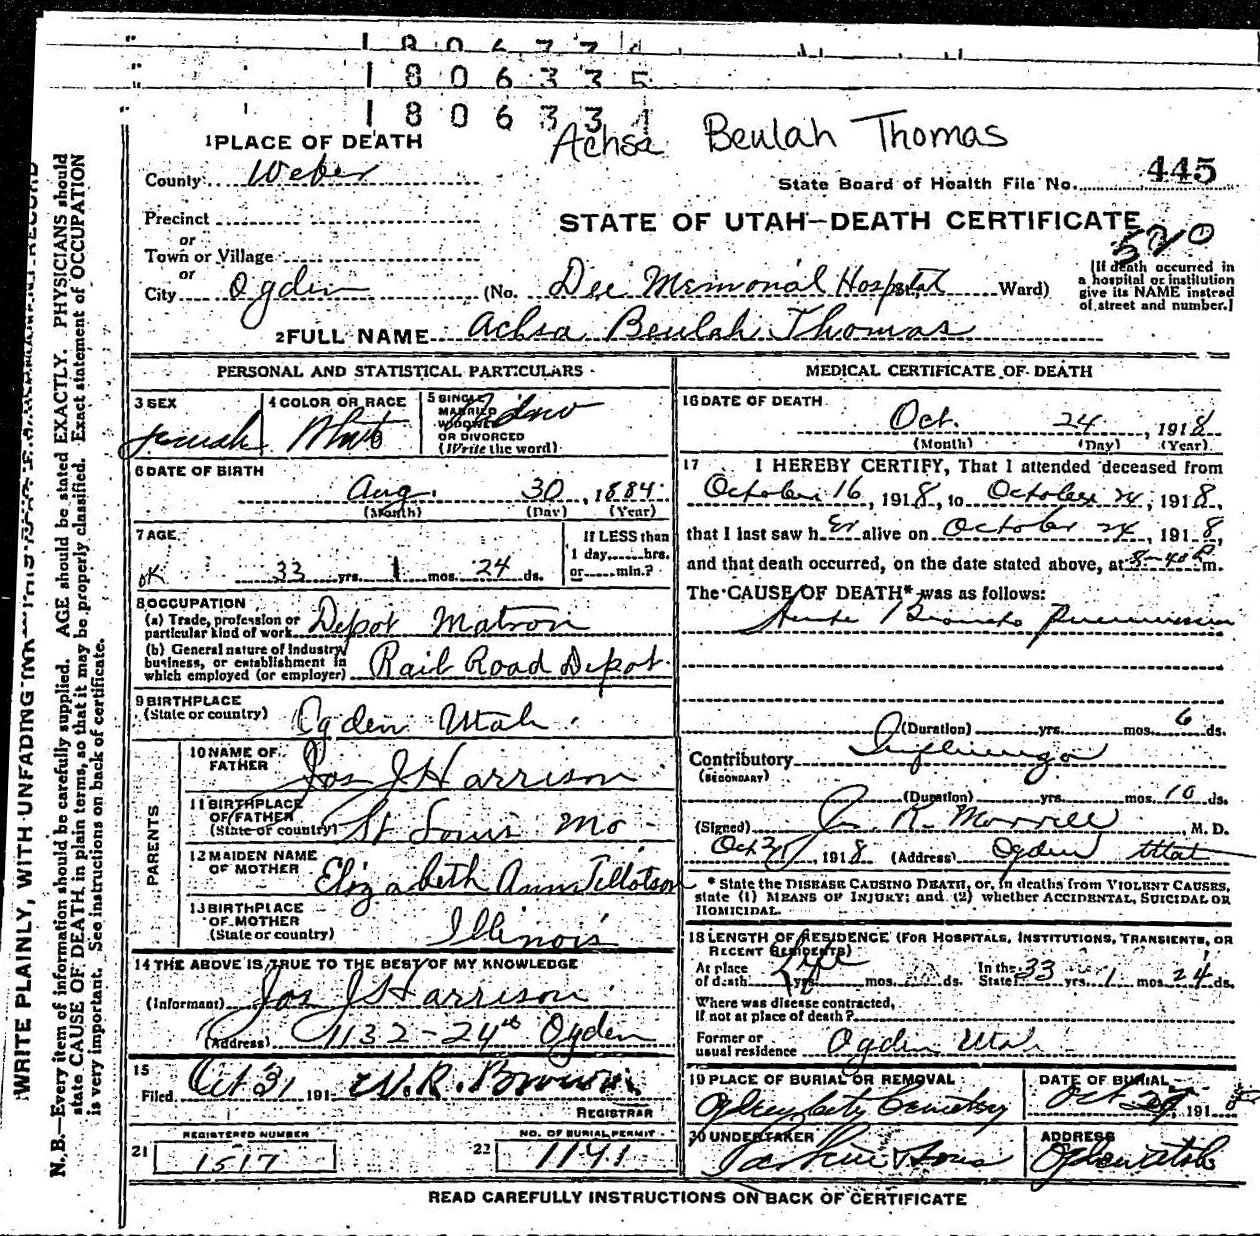 1 8 0 6 3 3 5
1 8 0 6 3 3 4
Achsa Beulah Thomas
1 PLACE OF DEATH
County Weber
State Board of Health File No. 445
Precinct
STATE OF UTAH—DEATH CERTIFICATE
or
Town or Village
520
or
City Ogden (No. Dee Memorial Hospital Ward)
[If death occurred in
a hospital or institution
give its NAME instead
of street and number.]
2 FULL NAME Achsa Beulah Thomas
PERSONAL AND STATISTICAL PARTICULARS
3 SEX Female
4 COLOR OR RACE White
5 SINGLE
MARRIED
WIDOWED
OR DIVORCED
(Write the word)
6 DATE OF BIRTH
Aug. 30, 1884
(Month) (Day) (Year)
7 AGE
OK 33 yrs. 1 mos. 24 ds.
If LESS than
1 day......hrs.
or......min.?
8 OCCUPATION
(a) Trade, profession or
particular kind of work Depot Matron
(b) General nature of Industry
business, or establishment in
which employed (or employer) Rail Road Depot
9 BIRTHPLACE
(State or country) Ogden Utah
PARENTS
10 NAME OF
FATHER Jos J Harrison
11 BIRTHPLACE
OF FATHER
(State or country) St Louis Mo
12 MAIDEN NAME
OF MOTHER Elizabeth Ann Tillotson
13 BIRTHPLACE
OF MOTHER
(State or country) Illinois
14 THE ABOVE IS TRUE TO THE BEST OF MY KNOWLEDGE
(Informant) Jos J Harrison
(Address) 1132-24th Ogden
15
Filed Oct 31 191 W. R. Brown
REGISTRAR
REGISTERED NUMBER
21 1517
NO. OF BURIAL PERMIT
22 1141
MEDICAL CERTIFICATE OF DEATH
16 DATE OF DEATH
Oct. 24, 1918
(Month) (Day) (Year)
17 I HEREBY CERTIFY, That I attended deceased from
October 16, 1918, to October 24, 1918,
that I last saw her alive on October 24, 1918,
and that death occurred, on the date stated above, at 8-40 P m.
The CAUSE OF DEATH* was as follows:
Acute Broncho pneumonia
(Duration) yrs. mos. 6 ds.
Contributory Influenza
(SECONDARY)
(Duration) yrs. mos. 10 ds.
(Signed) J. R. Morrell, M. D.
Oct 1918 (Address) Ogden Utah
* State the DISEASE CAUSING DEATH, or, in deaths from VIOLENT CAUSES,
state (1) MEANS OF INJURY; and (2) whether ACCIDENTAL, SUICIDAL OR
HOMICIDAL.
18 LENGTH OF RESIDENCE (FOR HOSPITALS, INSTITUTIONS, TRANSIENTS, OR
RECENT RESIDENTS)
At place
of death Life yrs. mos. ds. In the
State 33 yrs. 1 mos. 24 ds.
Where was disease contracted,
If not at place of death?
Former or
usual residence Ogden Utah
19 PLACE OF BURIAL OR REMOVAL
Ogden City Cemetery
DATE OF BURIAL
Oct 191 8
20 UNDERTAKER
Larkin & Sons
ADDRESS
Ogden Utah
READ CAREFULLY INSTRUCTIONS ON BACK OF CERTIFICATE
WRITE PLAINLY, WITH UNFADING INK
N. B.—Every item of information should be carefully supplied. AGE should be stated EXACTLY. PHYSICIANS should
state CAUSE OF DEATH in plain terms, so that it may be properly classified. Exact statement of OCCUPATION
is very important. See instructions on back of certificate.